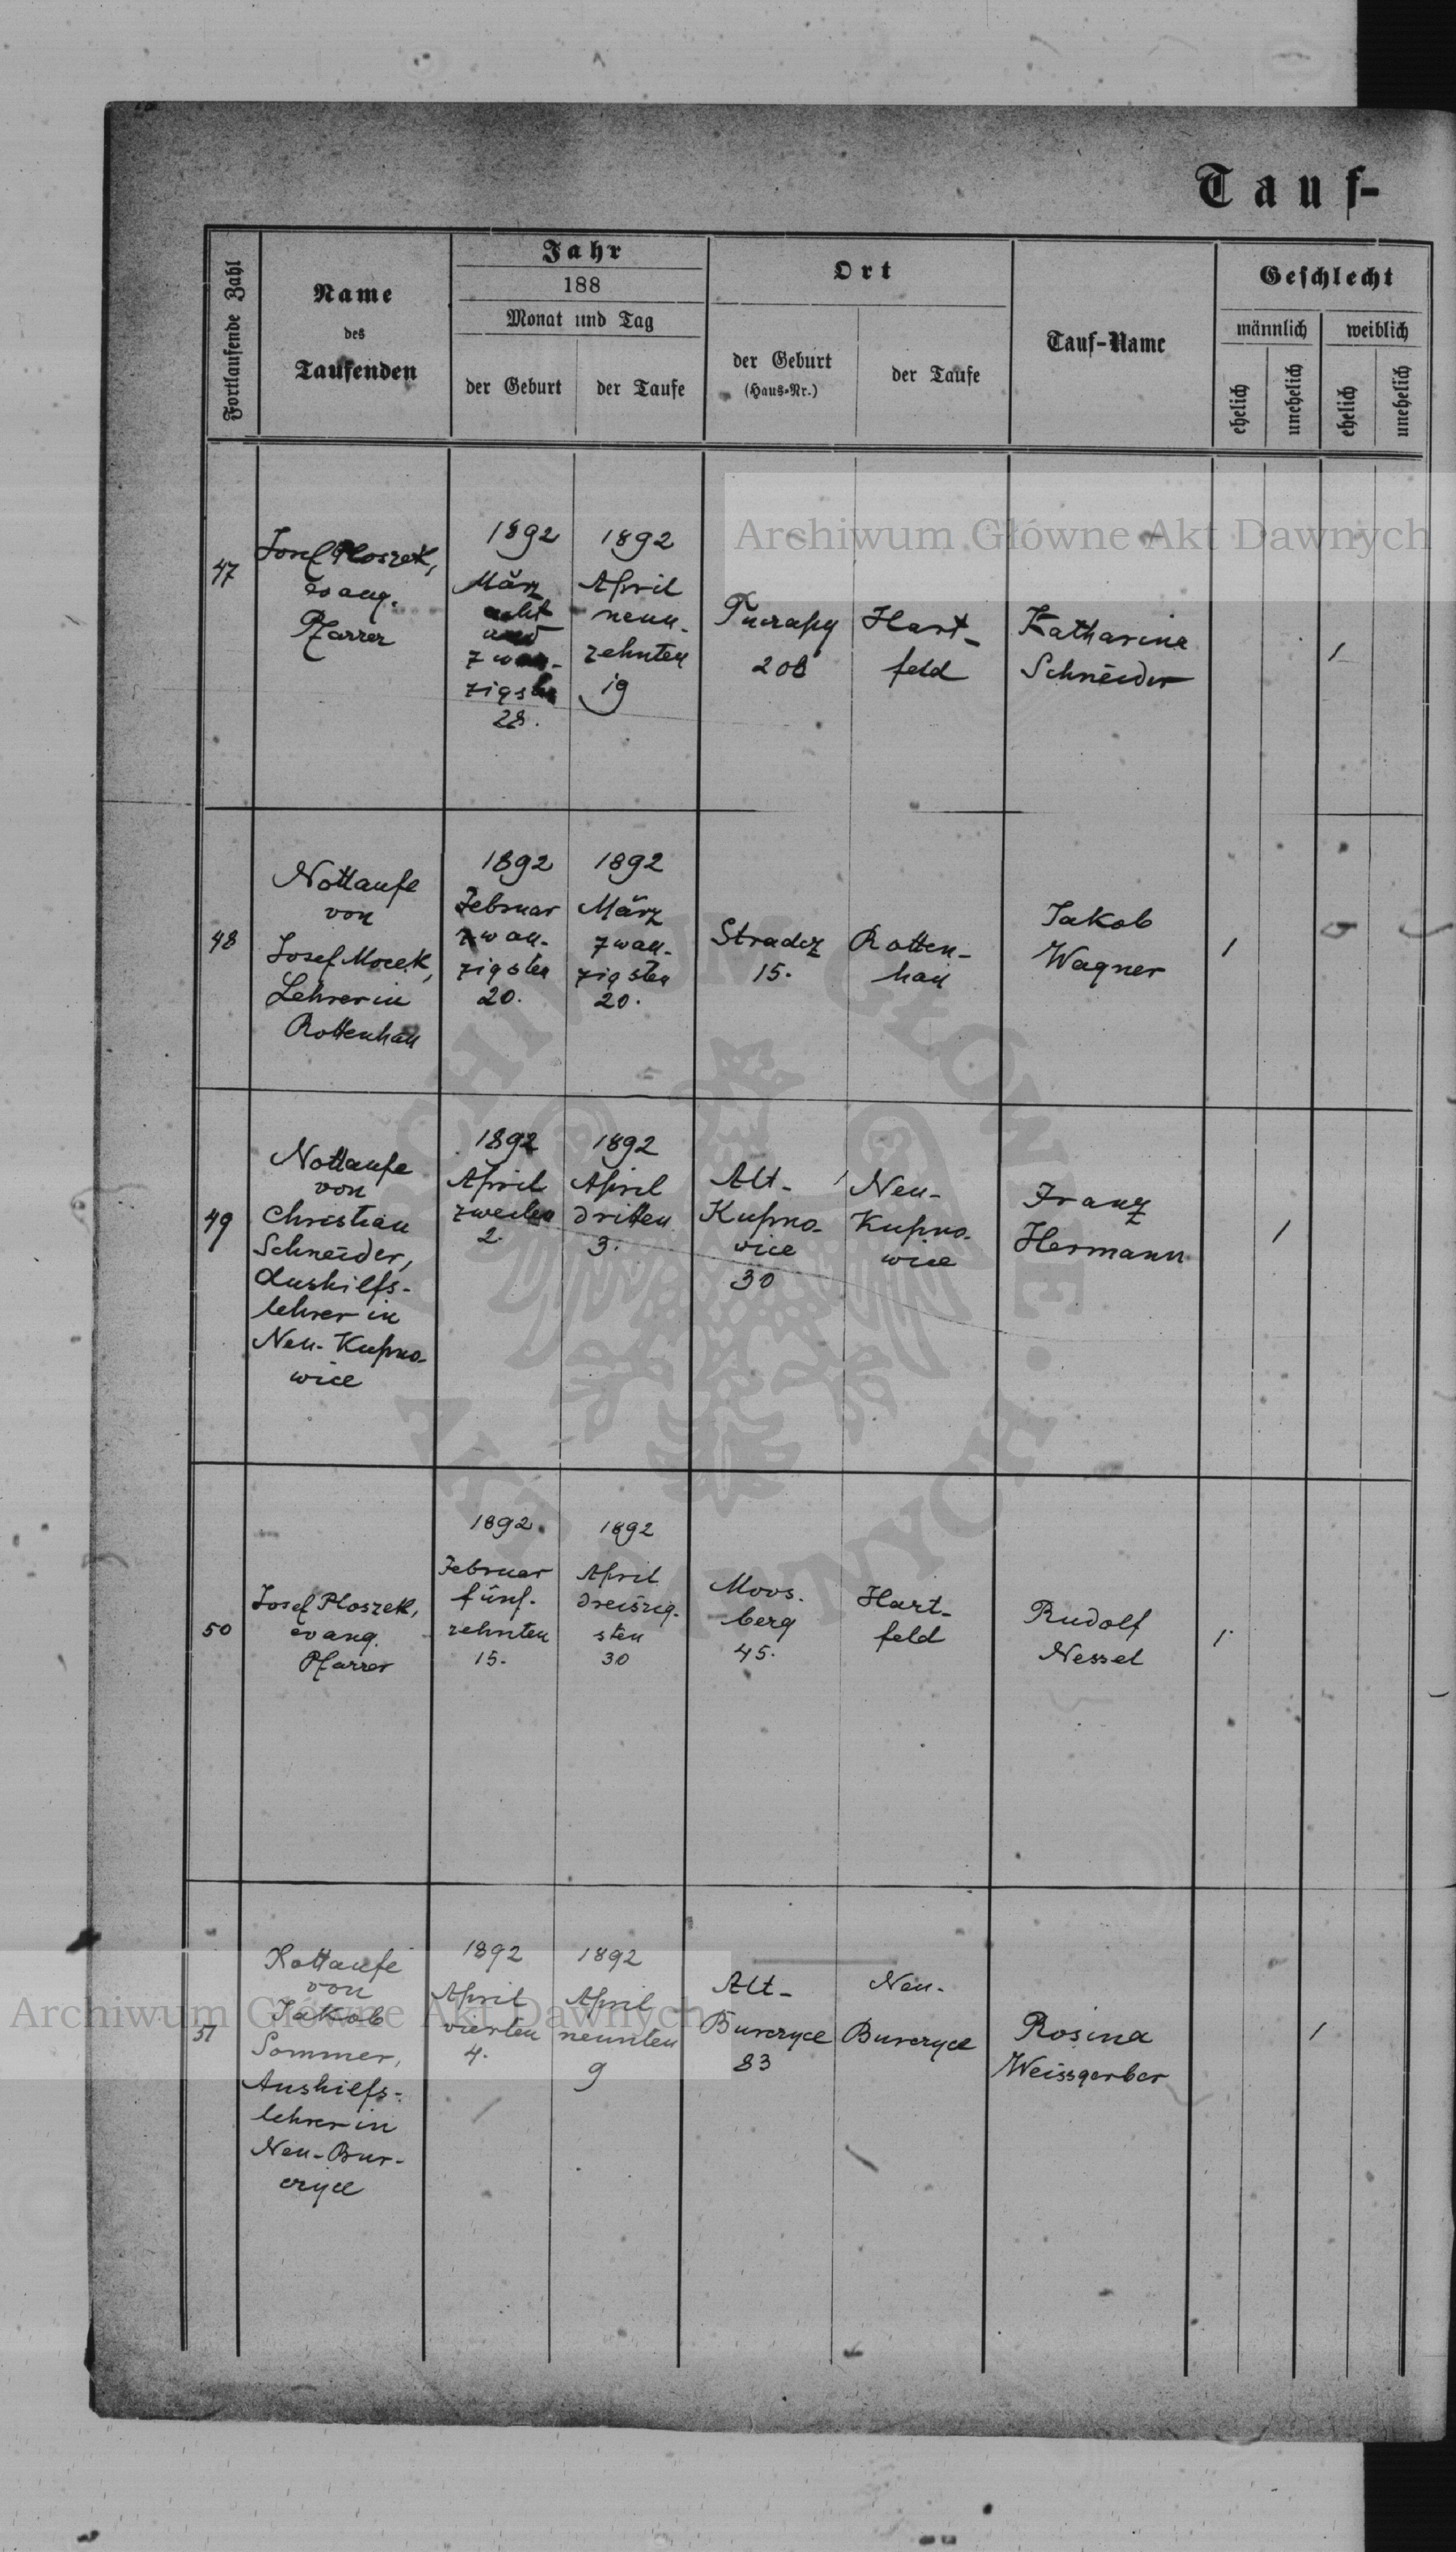 Tauf-
Fortlaufende Zahl
Name
des
Taufenden
Jahr
188
Monat und Tag
der Geburt
der Taufe
Ort
der Geburt
(Haus-Nr.)
der Taufe
Tauf-Name
Geschlecht
männlich
weiblich
ehelich
unehelich
ehelich
unehelich
Archiwum Główne Akt Dawnych
47
Josef Ploszek,
evang.
Pfarrer
1892
März
acht
und
zwan-
zigsten
28.
1892
April
neun-
zehnten
19
208
Hart-
feld
Katharina
Schneider
1
48
Nottaufe
von
Josef Mocek,
Lehrer in
Rottenhan
1892
Februar
zwan-
zigsten
20.
1892
März
zwan-
zigsten
20.
Stradcz
15.
Rotten-
han
Jakob
Wagner
1
49
Nottaufe
von
Christian
Schneider,
Aushilfs-
lehrer in
Neu-Kupno-
wice
1892
April
zweiten
2.
1892
April
dritten
3.
Alt-
Kupno-
wice
30
Neu-
Kupno-
wice
Franz
Hermann
1
50
Josef Ploszek,
evang.
Pfarrer
1892
Februar
fünf-
zehnten
15.
1892
April
dreiszig-
sten
30
Moos-
berg
45.
Hart-
feld
Rudolf
Nessel
1
51
Nottaufe
von
Jakob
Sommer,
Aushilfs-
lehrer in
Neu-Bur-
czyce
1892
April
vierten
4.
1892
April
neunten
9
Alt-
Burczyce
83
Neu-
Burczyce
Rosina
Weissgerber
1
Archiwum Główne Akt Dawnych
ARCHIWUM GŁÓWNE AKT DAWNYCH